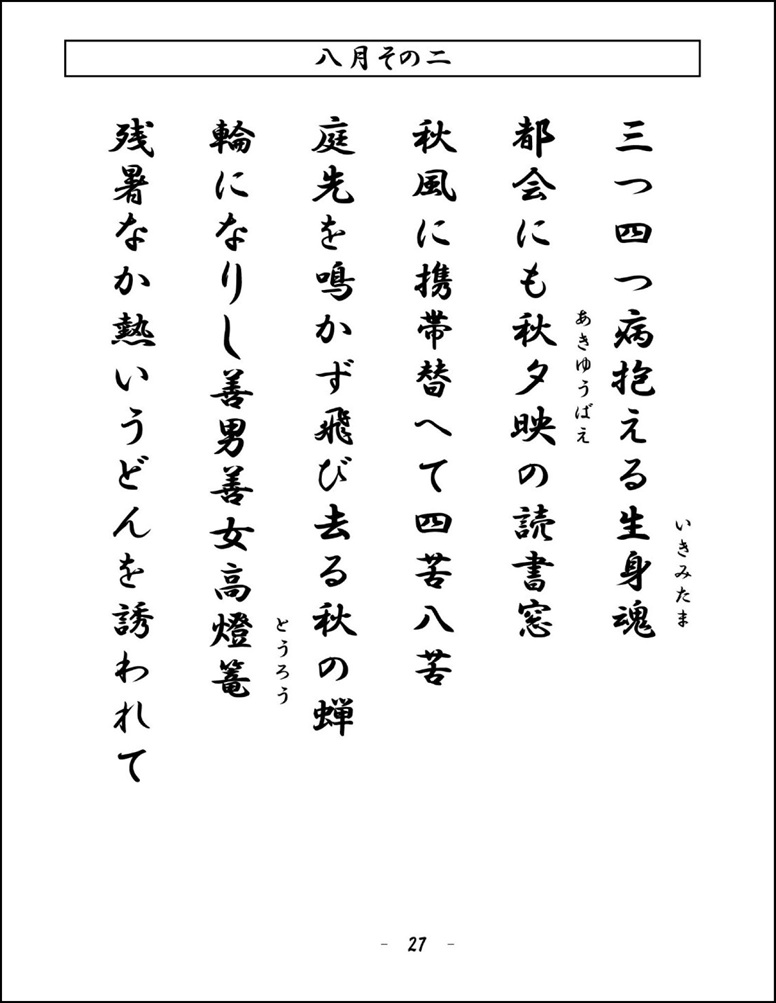 八月その二
三つ四つ病抱える生身魂
いきみたま
都会にも秋夕映の読書窓
あきゆうばえ
秋風に携帯替へて四苦八苦
庭先を鳴かず飛び去る秋の蝉
輪になりし善男善女高燈篭
とうろう
残暑なか熱いうどんを誘われて
- 27 -